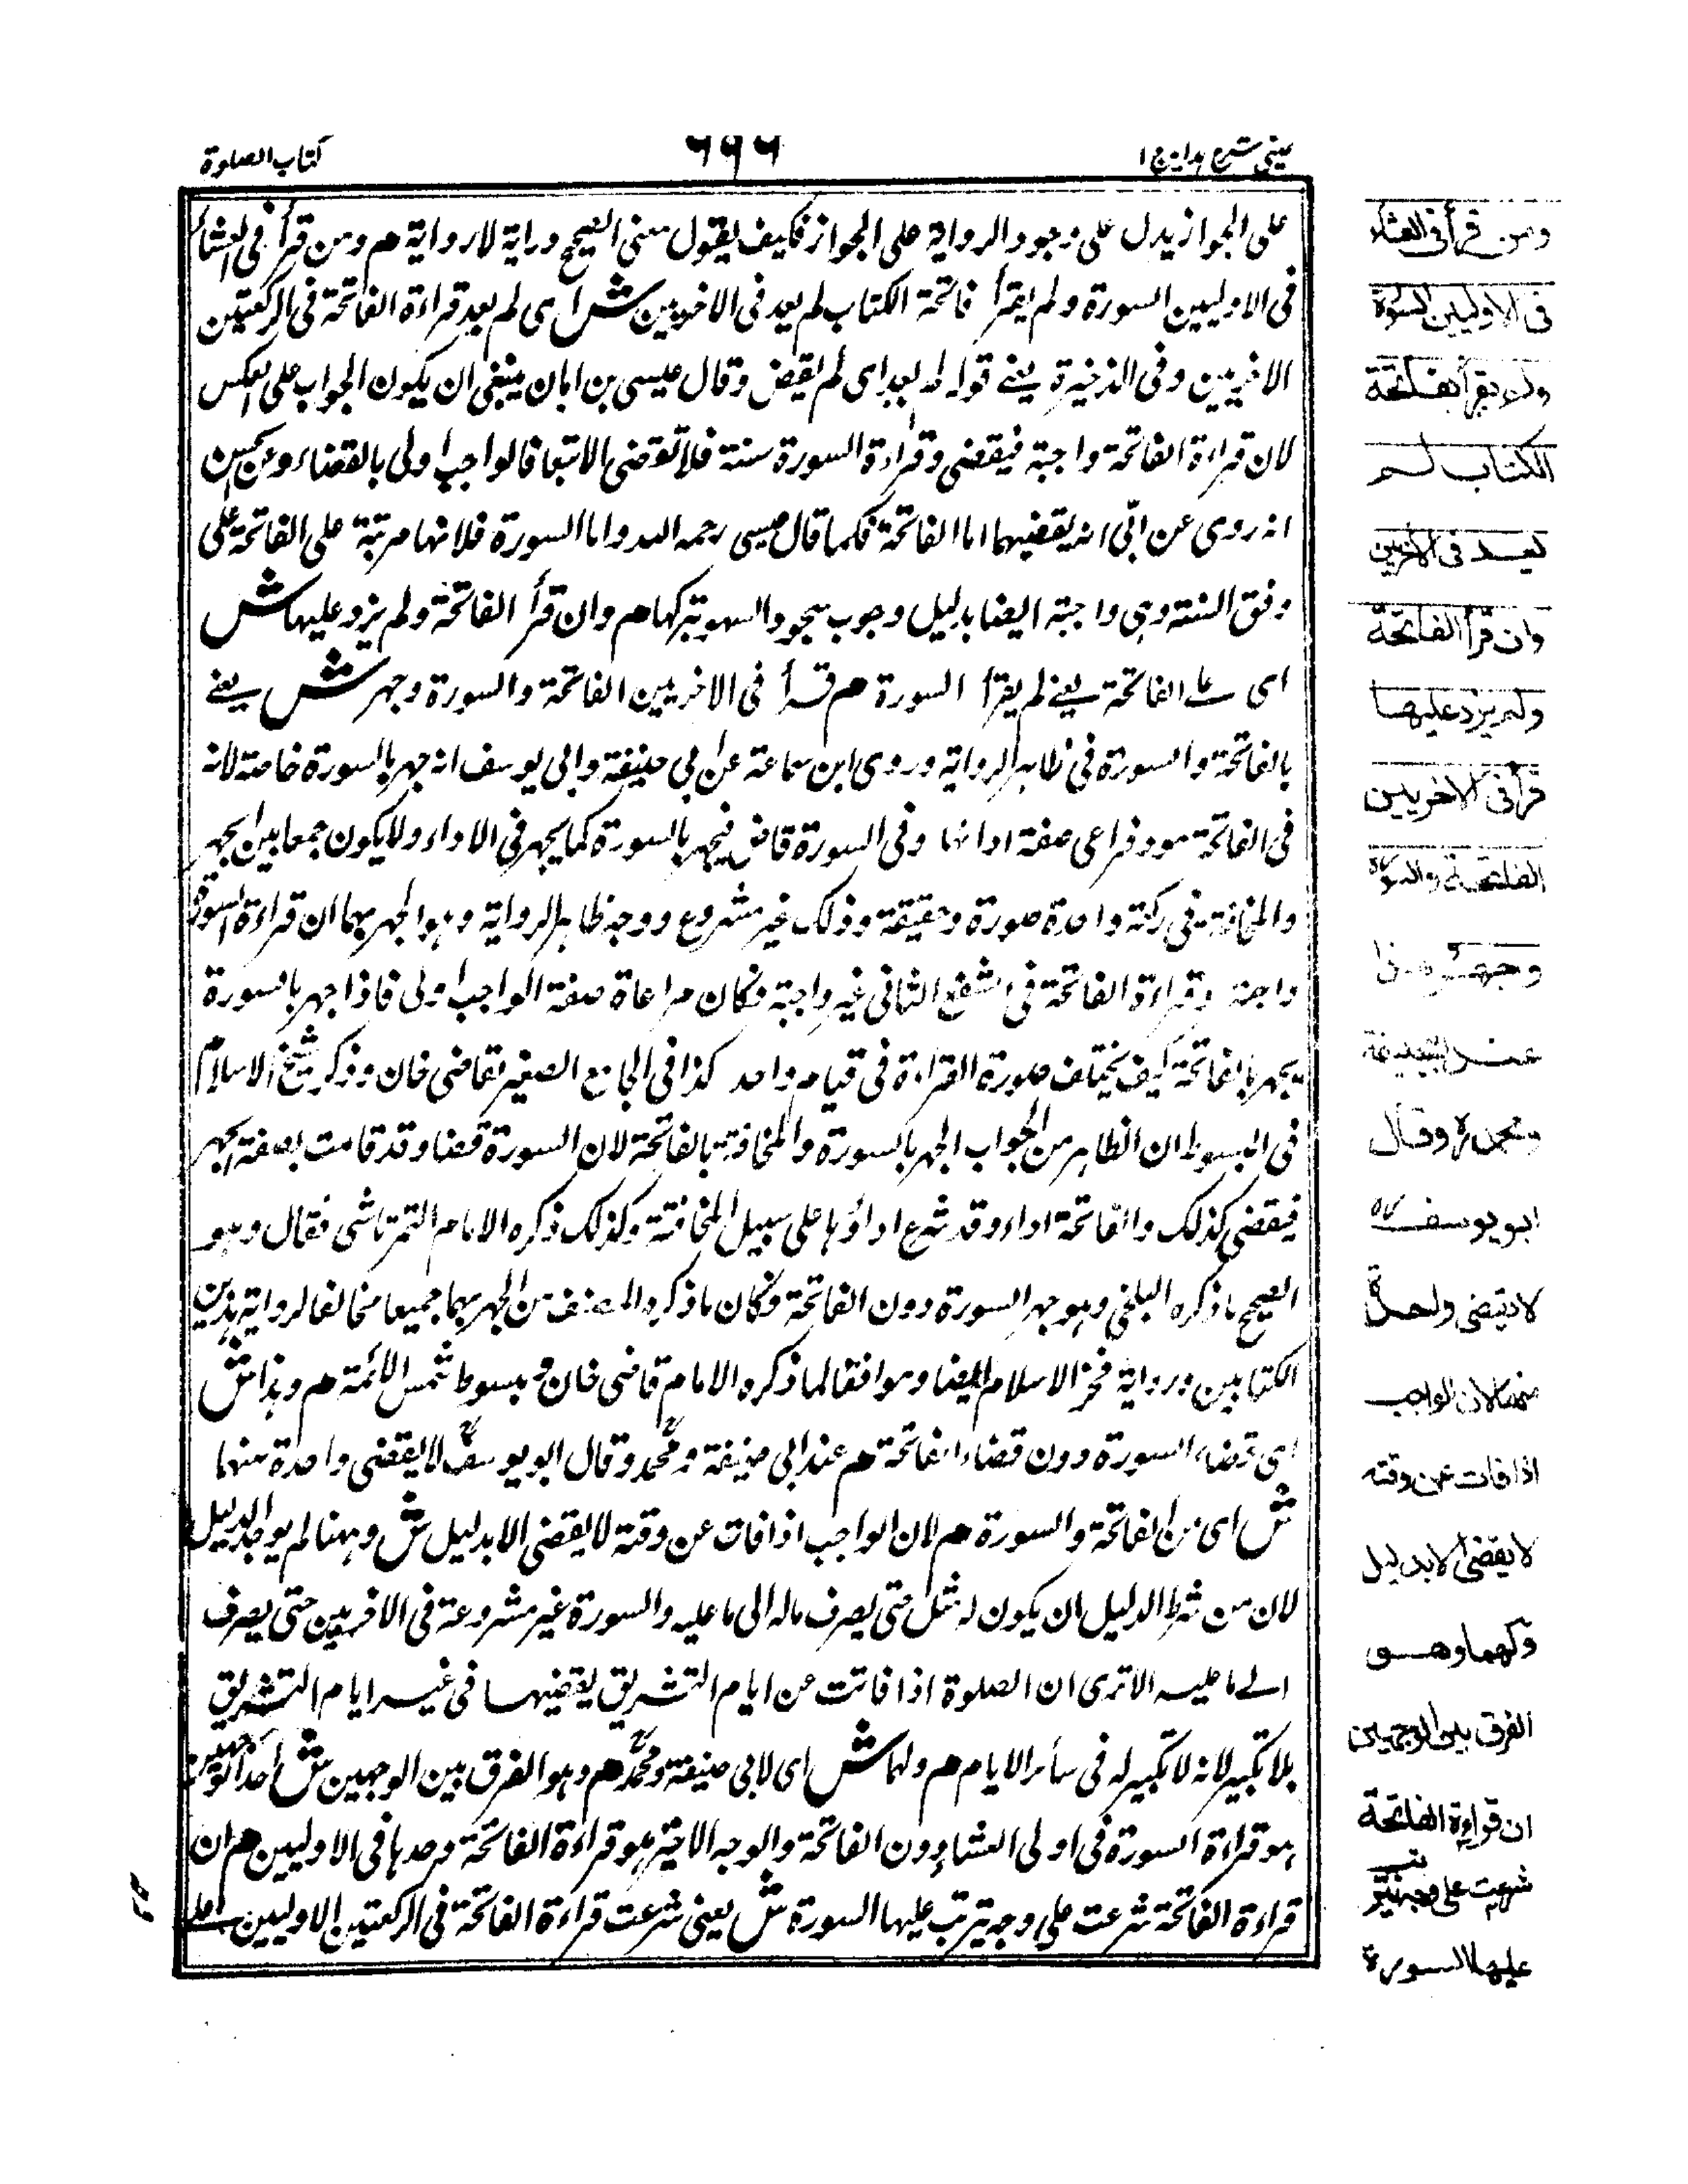 عینی شرح ہدایہ ج ا
٦٩٦
کتاب الصلوة
علی الجواز یدل علی وجود الروایة علی الجواز فکیف یقول معنی الصحیح درایة لاروایة هم ومن قرأ فی العشاء
فی الاولیین السورة ولم یقرأ فاتحة الکتاب لم یعد فی الاخریین ش ای لم یعد قراءة الفاتحة فی الرکعتین
الاخریین وفی الذخیرة یعنے قوله لم یعد ای لم یقض وقال عیسی بن ابان ینبغی ان یکون الجواب علی العکس
لان قراءة الفاتحة واجبة فیقضی وقراءة السورة سنة فلا تقضی الاتبعا فالواجب اولی بالقضاء وعن الحسن
انه روی عن ابی انه یقضیهما اما الفاتحة فکما قال عیسی رحمه الله واما السورة فلانها مرتبة علی الفاتحة علی
وفق السنة وهی واجبة ایضا بدلیل وجوب سجود السهو بترکها هم وان قرأ الفاتحة ولم یزد علیها ش
ای علے الفاتحة یعنے لم یقرأ السورة هم قرأ فی الاخریین الفاتحة والسورة وجهر ش یعنے
بالفاتحة والسورة فی ظاهر الروایة وروی ابن سماعة عن ابی حنیفة وابی یوسف انه جهر بالسورة خاصة لانه
فی الفاتحة مود فراعی صفة ادائها وفی السورة قاض فیجهر بالسورة کما یجهر فی الاداء ولایکون جمعا بین الجهر
والمخافتة فی رکعة واحدة صورة وحقیقة وذلک غیر مشروع ووجه ظاهر الروایة وهو الجهر بهما ان قراءة السورة
واجبة وقراءة الفاتحة فی الشفع الثانی غیر واجبة فکان مراعاة صفة الواجب اولی فاذا جهر بالسورة
یجهر بالفاتحة کیف یختلف صورة القراءة فی قیام واحد کذا فی الجامع الصغیر لقاضی خان وذکر شیخ الاسلام
فی المبسوط ان الظاهر من الجواب الجهر بالسورة والمخافتة بالفاتحة لان السورة قضا وقد قامت بصفة الجهر
فیقضی کذلک والفاتحة اداء وقد شرع اداؤها علی سبیل المخافتة وکذلک ذکره الامام التمرتاشی فقال وهو
الصحیح ما ذکره البلخی وهو جهر السورة دون الفاتحة وکان ما ذکره المصنف من الجهر بهما جمیعا مخالفا لروایة هذین
الکتابین وروایة فخر الاسلام ایضا وموافقا لما ذکره الامام قاضی خان ومبسوط شمس الائمة هم وهذا ش
ای قضاء السورة دون قضاء الفاتحة هم عند ابی حنیفة ومحمد وقال ابو یوسف لایقضی واحدة منهما
ش ای من الفاتحة والسورة هم لان الواجب اذا فات عن وقته لا یقضی الا بدلیل ش وههنا لم یوجد الدلیل
لان من شرط الدلیل ان یکون له مثل حتی یصرف ماله الی ما علیه والسورة غیر مشروعة فی الاخریین حتی یصرف
الے ما علیه الاتری ان الصلوة اذا فاتت عن ایام التشریق یقضیها فی غیر ایام التشریق
بلا تکبیر لانه لا تکبیر له فی سائر الایام هم ولهما ش ای لابی حنیفة ومحمد هم وهو الفرق بین الوجهین ش احد الوجهین
هو قراءة السورة فی اولی العشاء دون الفاتحة والوجه الاخیر هو قراءة الفاتحة وحدها فی الاولیین هم ان
قراءة الفاتحة شرعت علی وجه یترتب علیها السورة ش یعنی شرعت قراءة الفاتحة فی الرکعتین الاولیین
ومن قرأ فی العشاء
فی الاولیین السورة
ولم یقرأ بفاتحة
الکتاب لم
یعد فی الاخریین
وان قرأ الفاتحة
ولم یزد علیها
قرأ فی الاخریین
الفاتحة والسورة
وجهر وهذا
عند ابی حنیفة
ومحمد وقال
ابو یوسف
لا یقضی واحدة
منهما لان الواجب
اذا فات عن وقته
لا یقضی الا بدلیل
ولهما وهو
الفرق بین الوجهین
ان قراءة الفاتحة
شرعت علی وجه یترتب
علیها السورة